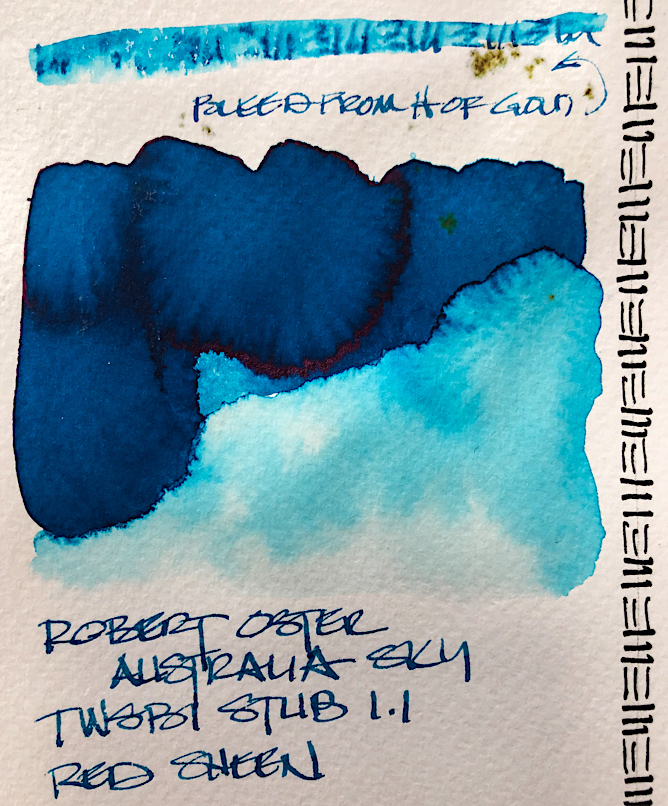 FROM H OF GOLD
ROBERT OSTER
AUSTRALIA SKY
TWSBI STUB 1.1
RED SHEEN